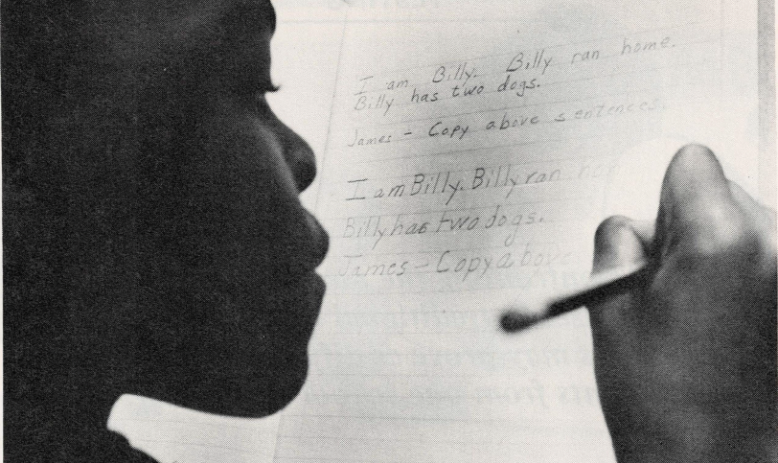 I am Billy. Billy ran home.
Billy has two dogs.
James - Copy above sentences.
I am Billy. Billy ran
Billy has two dogs.
James - Copy above